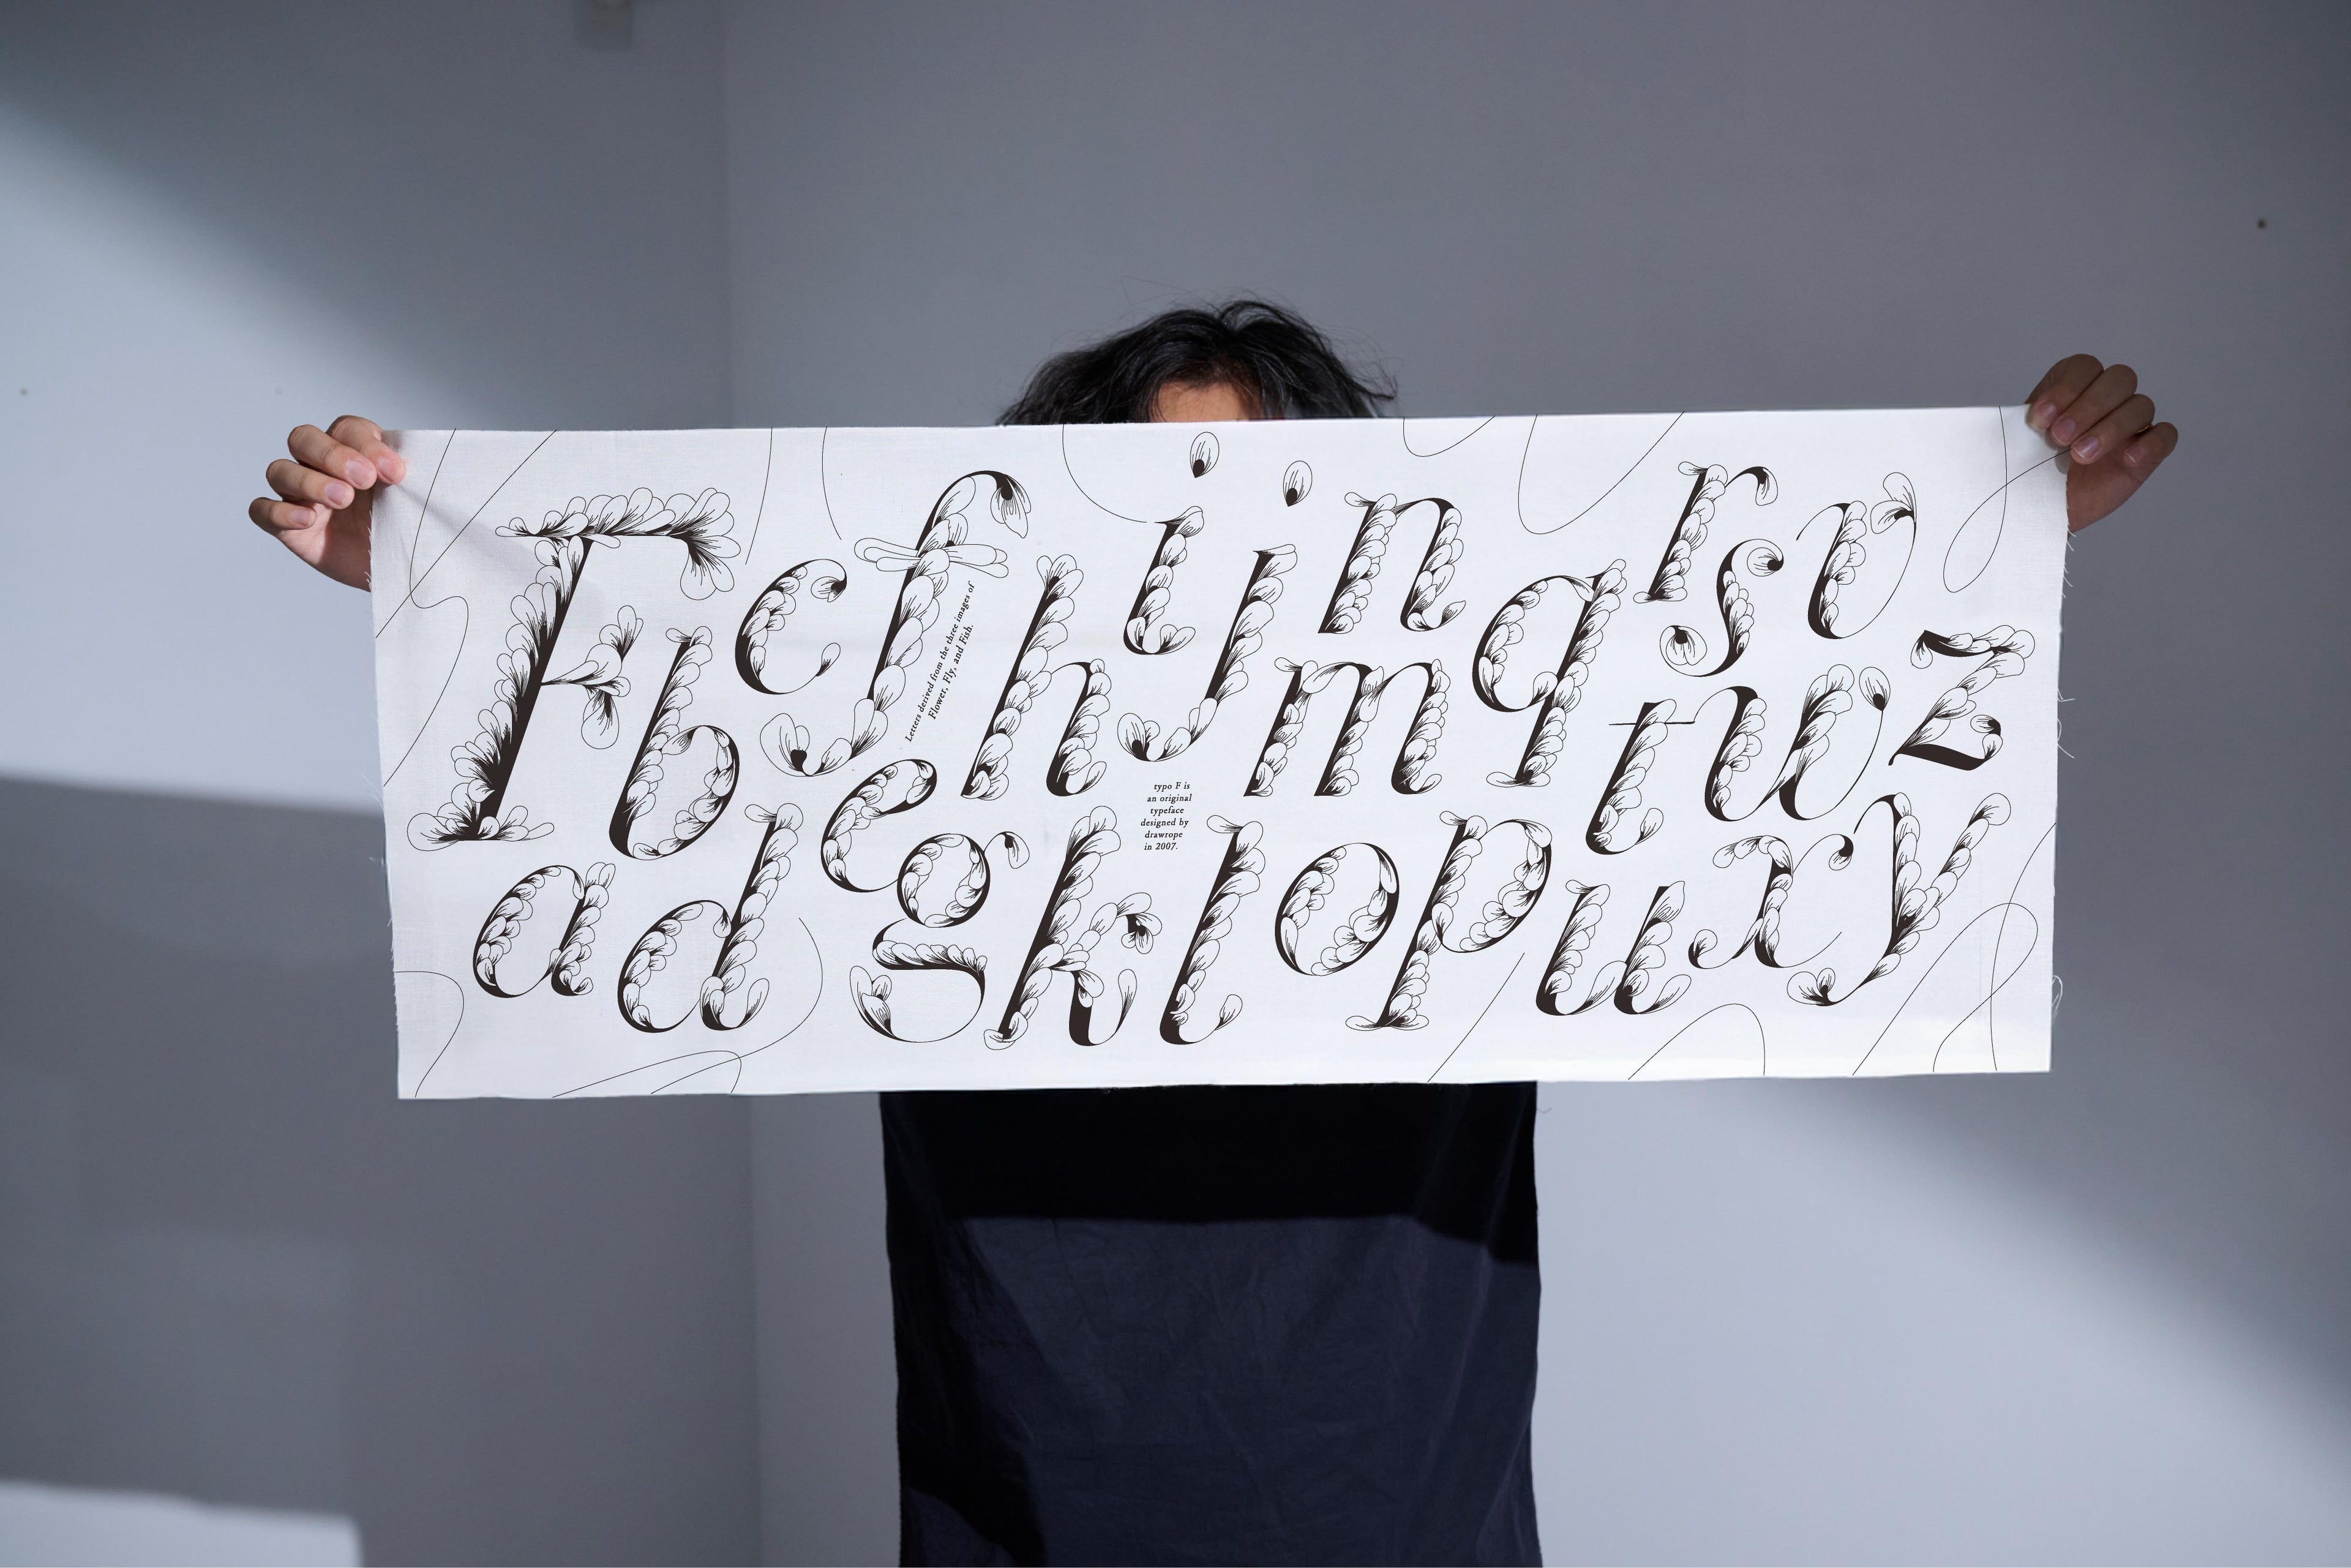 F
c
f
i
j
n
r
s
v
b
h
m
q
t
w
z
Letters derived from the three images of
Flower, Fly, and Fish.
typo F is
an original
typeface
designed by
drawrope
in 2007.
a
d
e
g
k
l
o
p
u
x
y